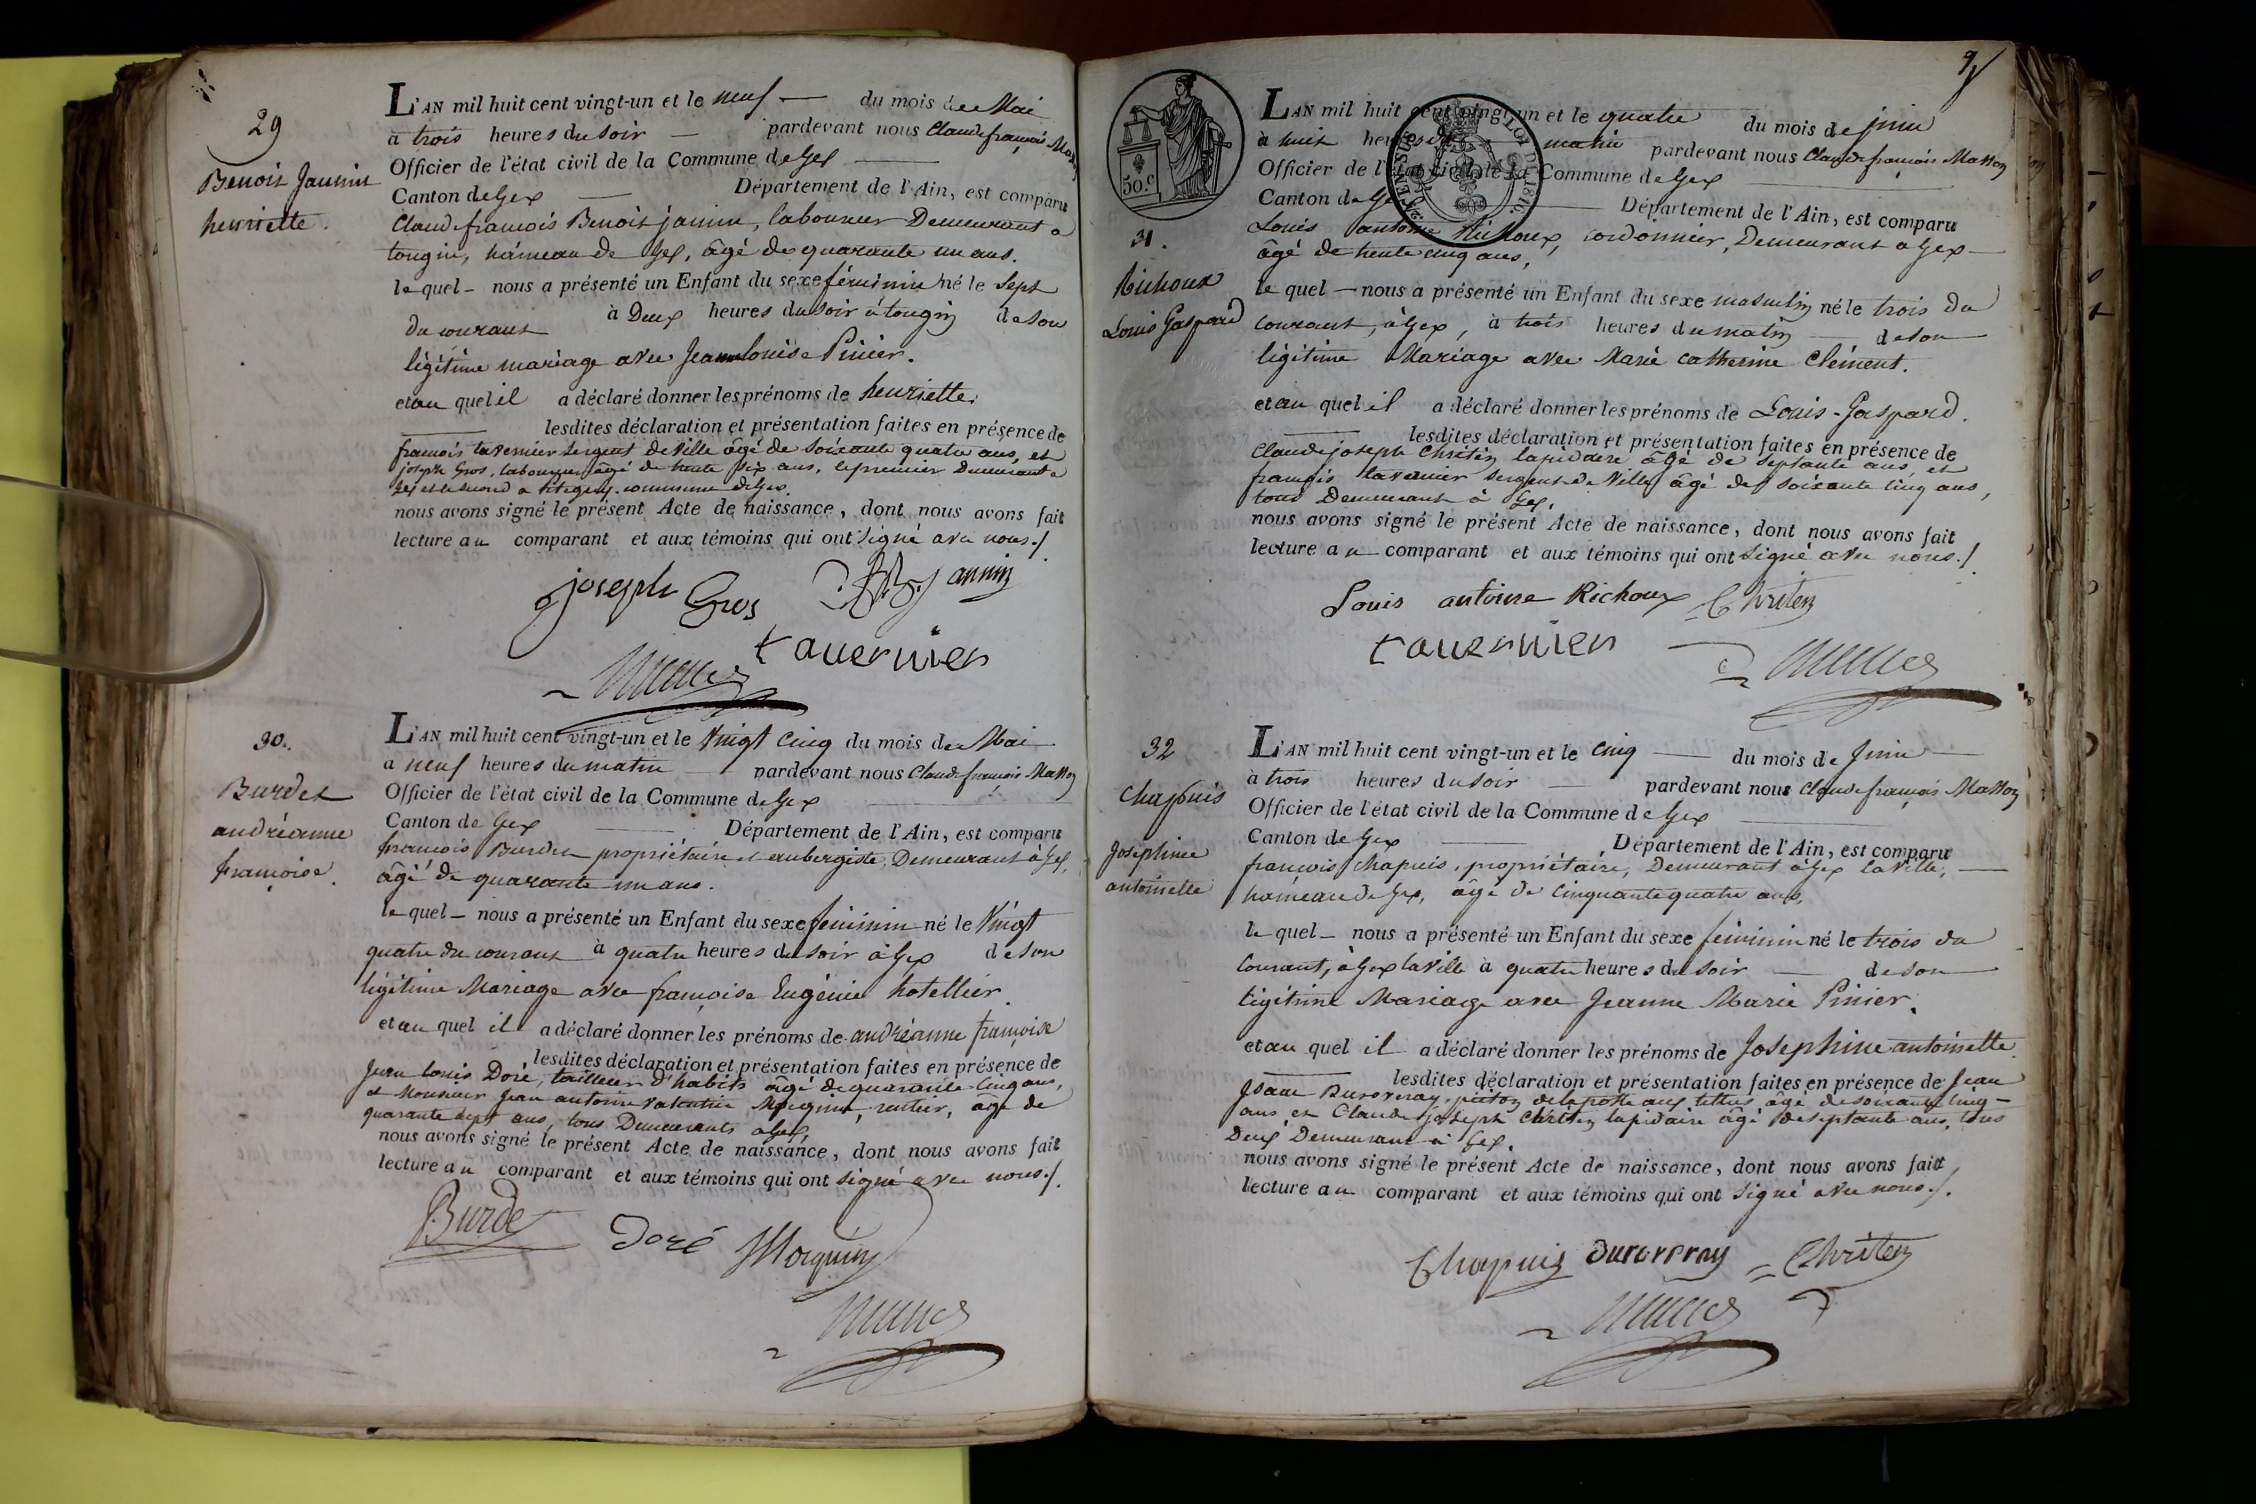 29
Benoit Jannin
henriette.
L'AN mil huit cent vingt-un et le neuf du mois de Mai
à trois heures du soir pardevant nous Claude françois Masson
Officier de l'état civil de la Commune de Gex
Canton de Gex Département de l'Ain, est comparu
Claude françois Benoit janin, laboureur Demeurant a
tougin, hameau de Gex, âgé de quarante un ans.
le quel nous a présenté un Enfant du sexe féminin né le sept
du courant à Deux heures du soir à tougin de son
légitime mariage avec Jeanne louise Pinier.
et au quel il a déclaré donner les prénoms de henriette.
lesdites déclaration et présentation faites en présence de
françois tavernier sergent de ville âgé de soixante quatre ans, et
joseph Gros, laboureur âgé de trente six ans, le premier Demeurant a
Gex et le second a commune de Gex.
nous avons signé le présent Acte de naissance, dont nous avons fait
lecture au comparant et aux témoins qui ont signé avec nous./
joseph Gros Jannin
tavernier
30.
Burdet
andréanne
françoise.
L'AN mil huit cent vingt-un et le Vingt cinq du mois de Mai
a neuf heures du matin pardevant nous Claude françois Masson
Officier de l'état civil de la Commune de Gex
Canton de Gex Département de l'Ain, est comparu
françois Burdet propriétaire et aubergiste, Demeurant à Gex,
âgé de quarante un ans.
le quel nous a présenté un Enfant du sexe féminin né le Vingt
quatre du courant à quatre heures du soir à Gex de son
légitime Mariage avec françoise Eugénie hotellier.
et au quel il a déclaré donner les prénoms de andréanne françoise
lesdites déclaration et présentation faites en présence de
Jean louis Doré, tailleur d'habits âgé de quarante cinq ans,
et Monsieur Jean antoine Valentin rentier, âgé de
quarante sept ans, tous Demeurants à Gex,
nous avons signé le présent Acte de naissance, dont nous avons fait
lecture au comparant et aux témoins qui ont signé avec nous./.
Burde Doré
9
50.c
LOI DE 1816.
31.
Richoux
Louis Gaspard
L'AN mil huit cent vingt-un et le quatre du mois de juin
à huit heures du matin pardevant nous Claude françois Masson
Officier de l'état civil de la Commune de Gex
Canton de Gex Département de l'Ain, est comparu
Louis antoine Richoux, cordonnier, Demeurant a Gex
âgé de trente cinq ans,
le quel nous a présenté un Enfant du sexe masculin né le trois du
courant, à Gex, à trois heures du matin de son
légitime Mariage avec Marie catherine Clément.
et au quel il a déclaré donner les prénoms de Louis-Gaspard.
lesdites déclaration et présentation faites en présence de
Claude joseph Chriten lapidaire âgé de septante ans, et
françois tavernier sergent de Ville âgé de soixante cinq ans,
tous Demeurant à Gex.
nous avons signé le présent Acte de naissance, dont nous avons fait
lecture au comparant et aux témoins qui ont signé avec nous./.
Louis antoine Richoux Chriten
tavernier
32
Chapuis
Josephine
antoinette
L'AN mil huit cent vingt-un et le cinq du mois de Juin
à trois heures du soir pardevant nous Claude françois Masson
Officier de l'état civil de la Commune de Gex
Canton de Gex Département de l'Ain, est comparu
françois Chapuis, propriétaire, Demeurant à Gex la Ville,
hameau de Gex, âgé de cinquante quatre ans,
le quel nous a présenté un Enfant du sexe féminin né le trois du
Courant, à Gex la Ville à quatre heures du soir de son
légitime Mariage avec Jeanne Marie Pinier.
et au quel il a déclaré donner les prénoms de Josephine antoinette.
lesdites déclaration et présentation faites en présence de Jean
Isaac Duroveray, piéton de la poste aux lettres âgé de soixante cinq
ans et Claude joseph Chriten lapidaire âgé de septante ans, tous
Deux Demeurant à Gex.
nous avons signé le présent Acte de naissance, dont nous avons fait
lecture au comparant et aux témoins qui ont signé avec nous./.
Chapuis duroveray Chriten